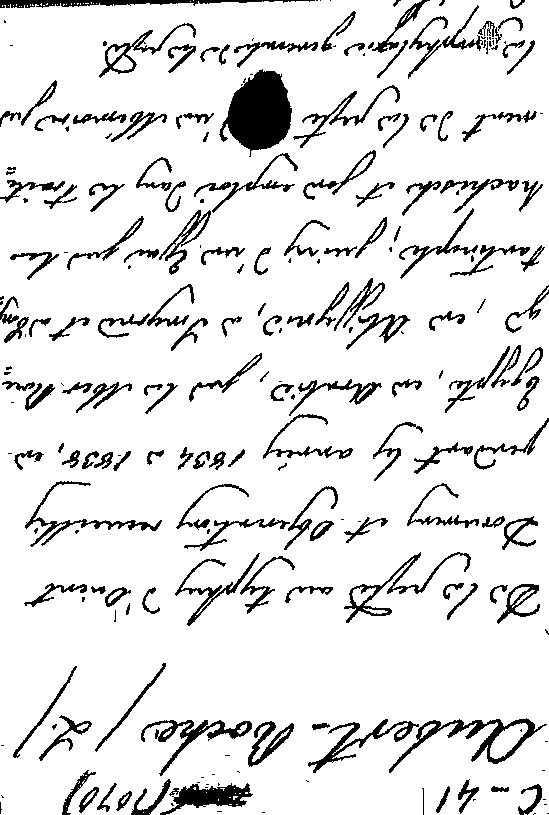 C - 41 (1070)
Aubert-Roche (L.)
De la peste ou typhus d'Orient
Documens et Observations recueillis
pendant les années 1834 à 1838, en
Egypte, en Arabie, sur la Mer Rou=
ge, en Abyssinie, à Smyrne et à Cons
tantinople; suivis d'un Essai sur le
hachisch et son emploi dans le traite=
ment de la peste d'un Mémoire sur
la prophylaxie générale de la peste.